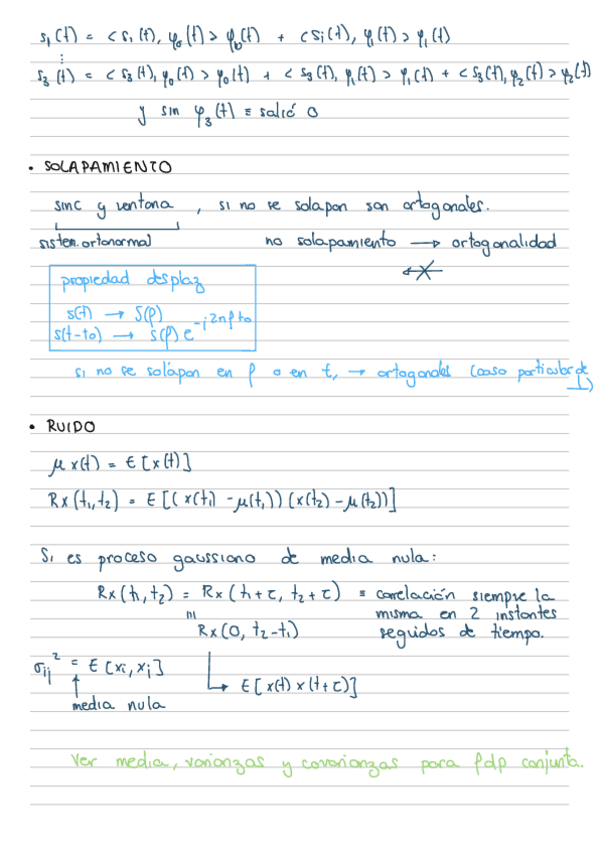 s₁(t) = <s₁(t), φ₀(t)> φ₀(t) + <s₁(t), φ₁(t)> φ₁(t)
⋮
s₃(t) = <s₃(t), φ₀(t)> φ₀(t) + <s₃(t), φ₁(t)> φ₁(t) + <s₃(t), φ₂(t)> φ₂(t)
y sin φ₃(t) ≡ salió 0
• SOLAPAMIENTO
sinc y ventana , si no se solapan son ortogonales.
sistem. ortonormal no solapamiento → ortogonalidad
propiedad desplaz
s(t) → S(f)
s(t-to) → S(f) e^-j2πfto
si no se solapan en f o en t, → ortogonales (caso particular de ⊥)
• RUIDO
μx(t) = E[x(t)]
Rx(t₁,t₂) = E[(x(t₁) - μ(t₁))(x(t₂) - μ(t₂))]
Si es proceso gaussiano de media nula:
Rx(t₁,t₂) = Rx(t₁+τ, t₂+τ) ≡ correlación siempre la
misma en 2 instantes
Rx(0, t₂-t₁) seguidos de tiempo.
σij² = E[xi, xj]
E[x(t) x(t+τ)]
media nula
Ver media, varianzas y covarianzas para fdp conjunta.